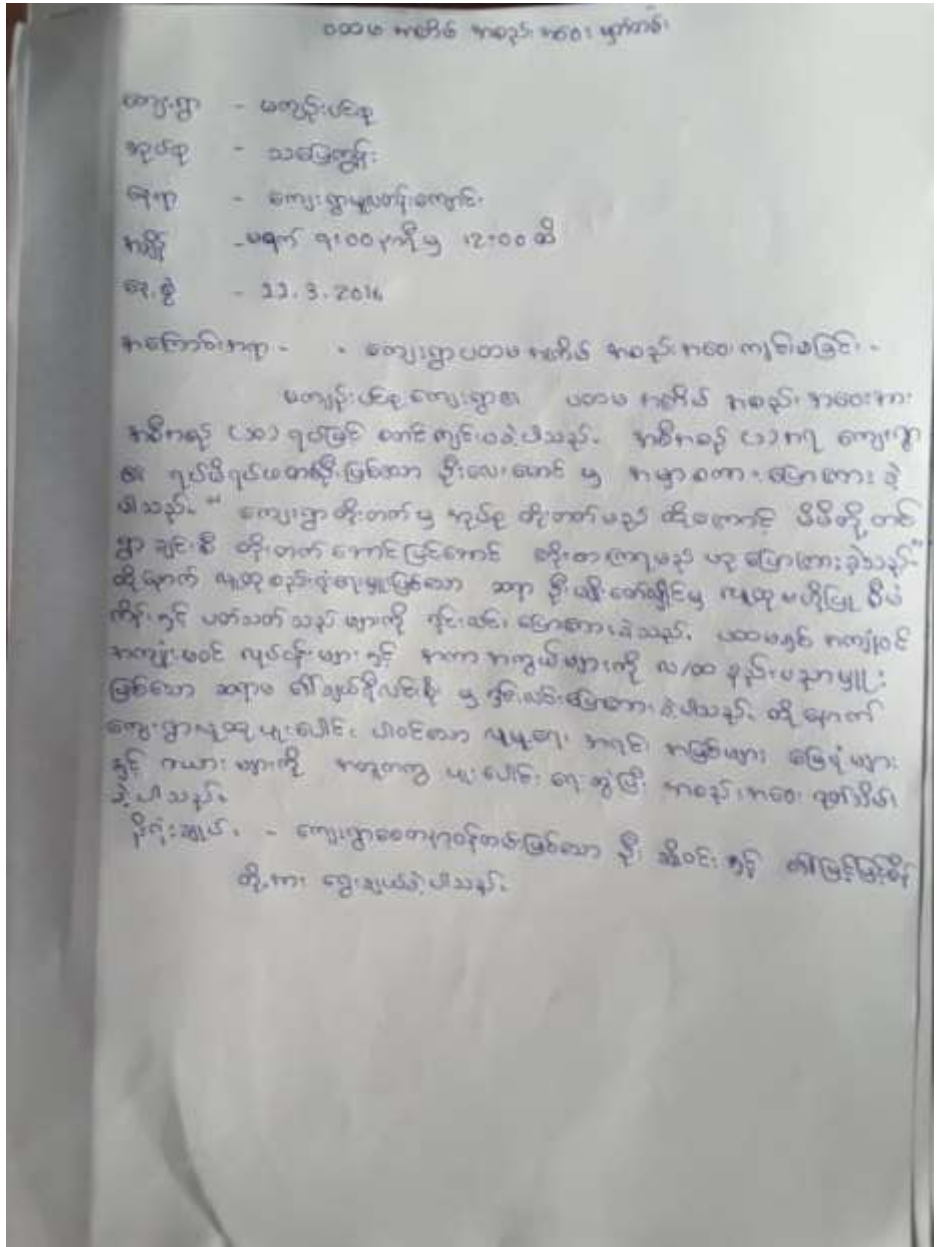 ပထမ အကြိမ် အစည်းအဝေး မှတ်တမ်း
ကျေးရွာ - မကျည်းပင်စု
အုပ်စု - သပြေကျွန်း
နေရာ - ကျေးရွာမူလတန်းကျောင်း
အချိန် - မနက် 9:00 နာရီ မှ 12:00 ထိ
နေ့စွဲ - 22.3.2016
အကြောင်းအရာ - - ကျေးရွာပထမ အကြိမ် အစည်းအဝေး ကျင်းပခြင်း -
မကျည်းပင်စု ကျေးရွာ၏ ပထမ အကြိမ် အစည်း အဝေးအား
အစီအစဉ် (၁၀) ရပ်ဖြင့် စတင်ကျင်းပခဲ့ပါသည်။ အစီအစဉ် (၁) အရ ကျေးရွာ
၏ ရပ်မိရပ်ဖတစ်ဦးဖြစ်သော ဦးလေးမောင် မှ အမှာစကား ပြောကြားခဲ့
ပါသည်။ " ကျေးရွာတိုးတက်မှ အုပ်စု တိုးတက်မည် ထို့ကြောင့် မိမိတို့ တစ်
ရွာချင်းစီ တိုးတက်အောင်မြင်အောင် ကြိုးစားကြရမည် ဟု ပြောကြားခဲ့သည်"
ထို့နောက် လူထုစည်းရုံးရေးမှူးဖြစ်သော ဆရာ ဦး မှ လူထုဗဟိုပြု စီမံ
ကိန်းနှင့် ပတ်သတ်သည်များကို ရှင်းလင်း ပြောကြားခဲ့သည်။ ပထမနှစ် အကျုံးဝင်
အကျုံးမဝင် လုပ်ငန်းများနှင့် အကာအကွယ်များကို လ/ထ နည်းပညာမှူး
ဖြစ်သော ဆရာမ ဒေါ် မှ ရှင်းလင်းပြောကြားခဲ့ပါသည်။ ထို့နောက်
ကျေးရွာလူထု ပူးပေါင်း ပါဝင်သော လူမှုရေး အရင်း အမြစ်များ မြေပုံများ
နှင့် ဇယား များကို အတူတကွ ပူးပေါင်း ရေးဆွဲပြီး အစည်းအဝေး ရုတ်သိမ်း
ခဲ့ပါသည်။
ဦး နှင့် ဒေါ်
တို့အား ရွေးချယ်ခဲ့ပါသည်။